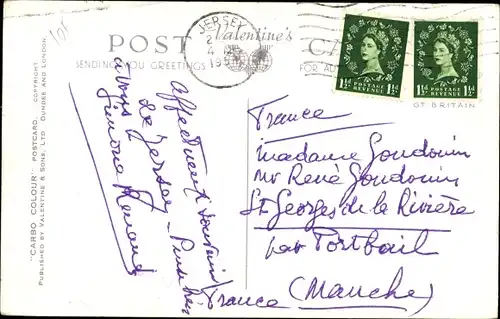 105
POST Valentine's CA
SENDING YOU GREETINGS
FOR AU
JERSEY
2
4
19
1½d POSTAGE REVENUE 1½d
1½d POSTAGE REVENUE 1½d
GT BRITAIN
"CARBO COLOUR" POSTCARD. COPYRIGHT
PUBLISHED BY VALENTINE & SONS, LTD. DUNDEE AND LONDON
Affectueux Souvenir
de Jersey
à vous
Simone Renaud
France
Madame Goudouin
Mr René Goudouin
St Georges de la Rivière
par Portbail
France (Manche)